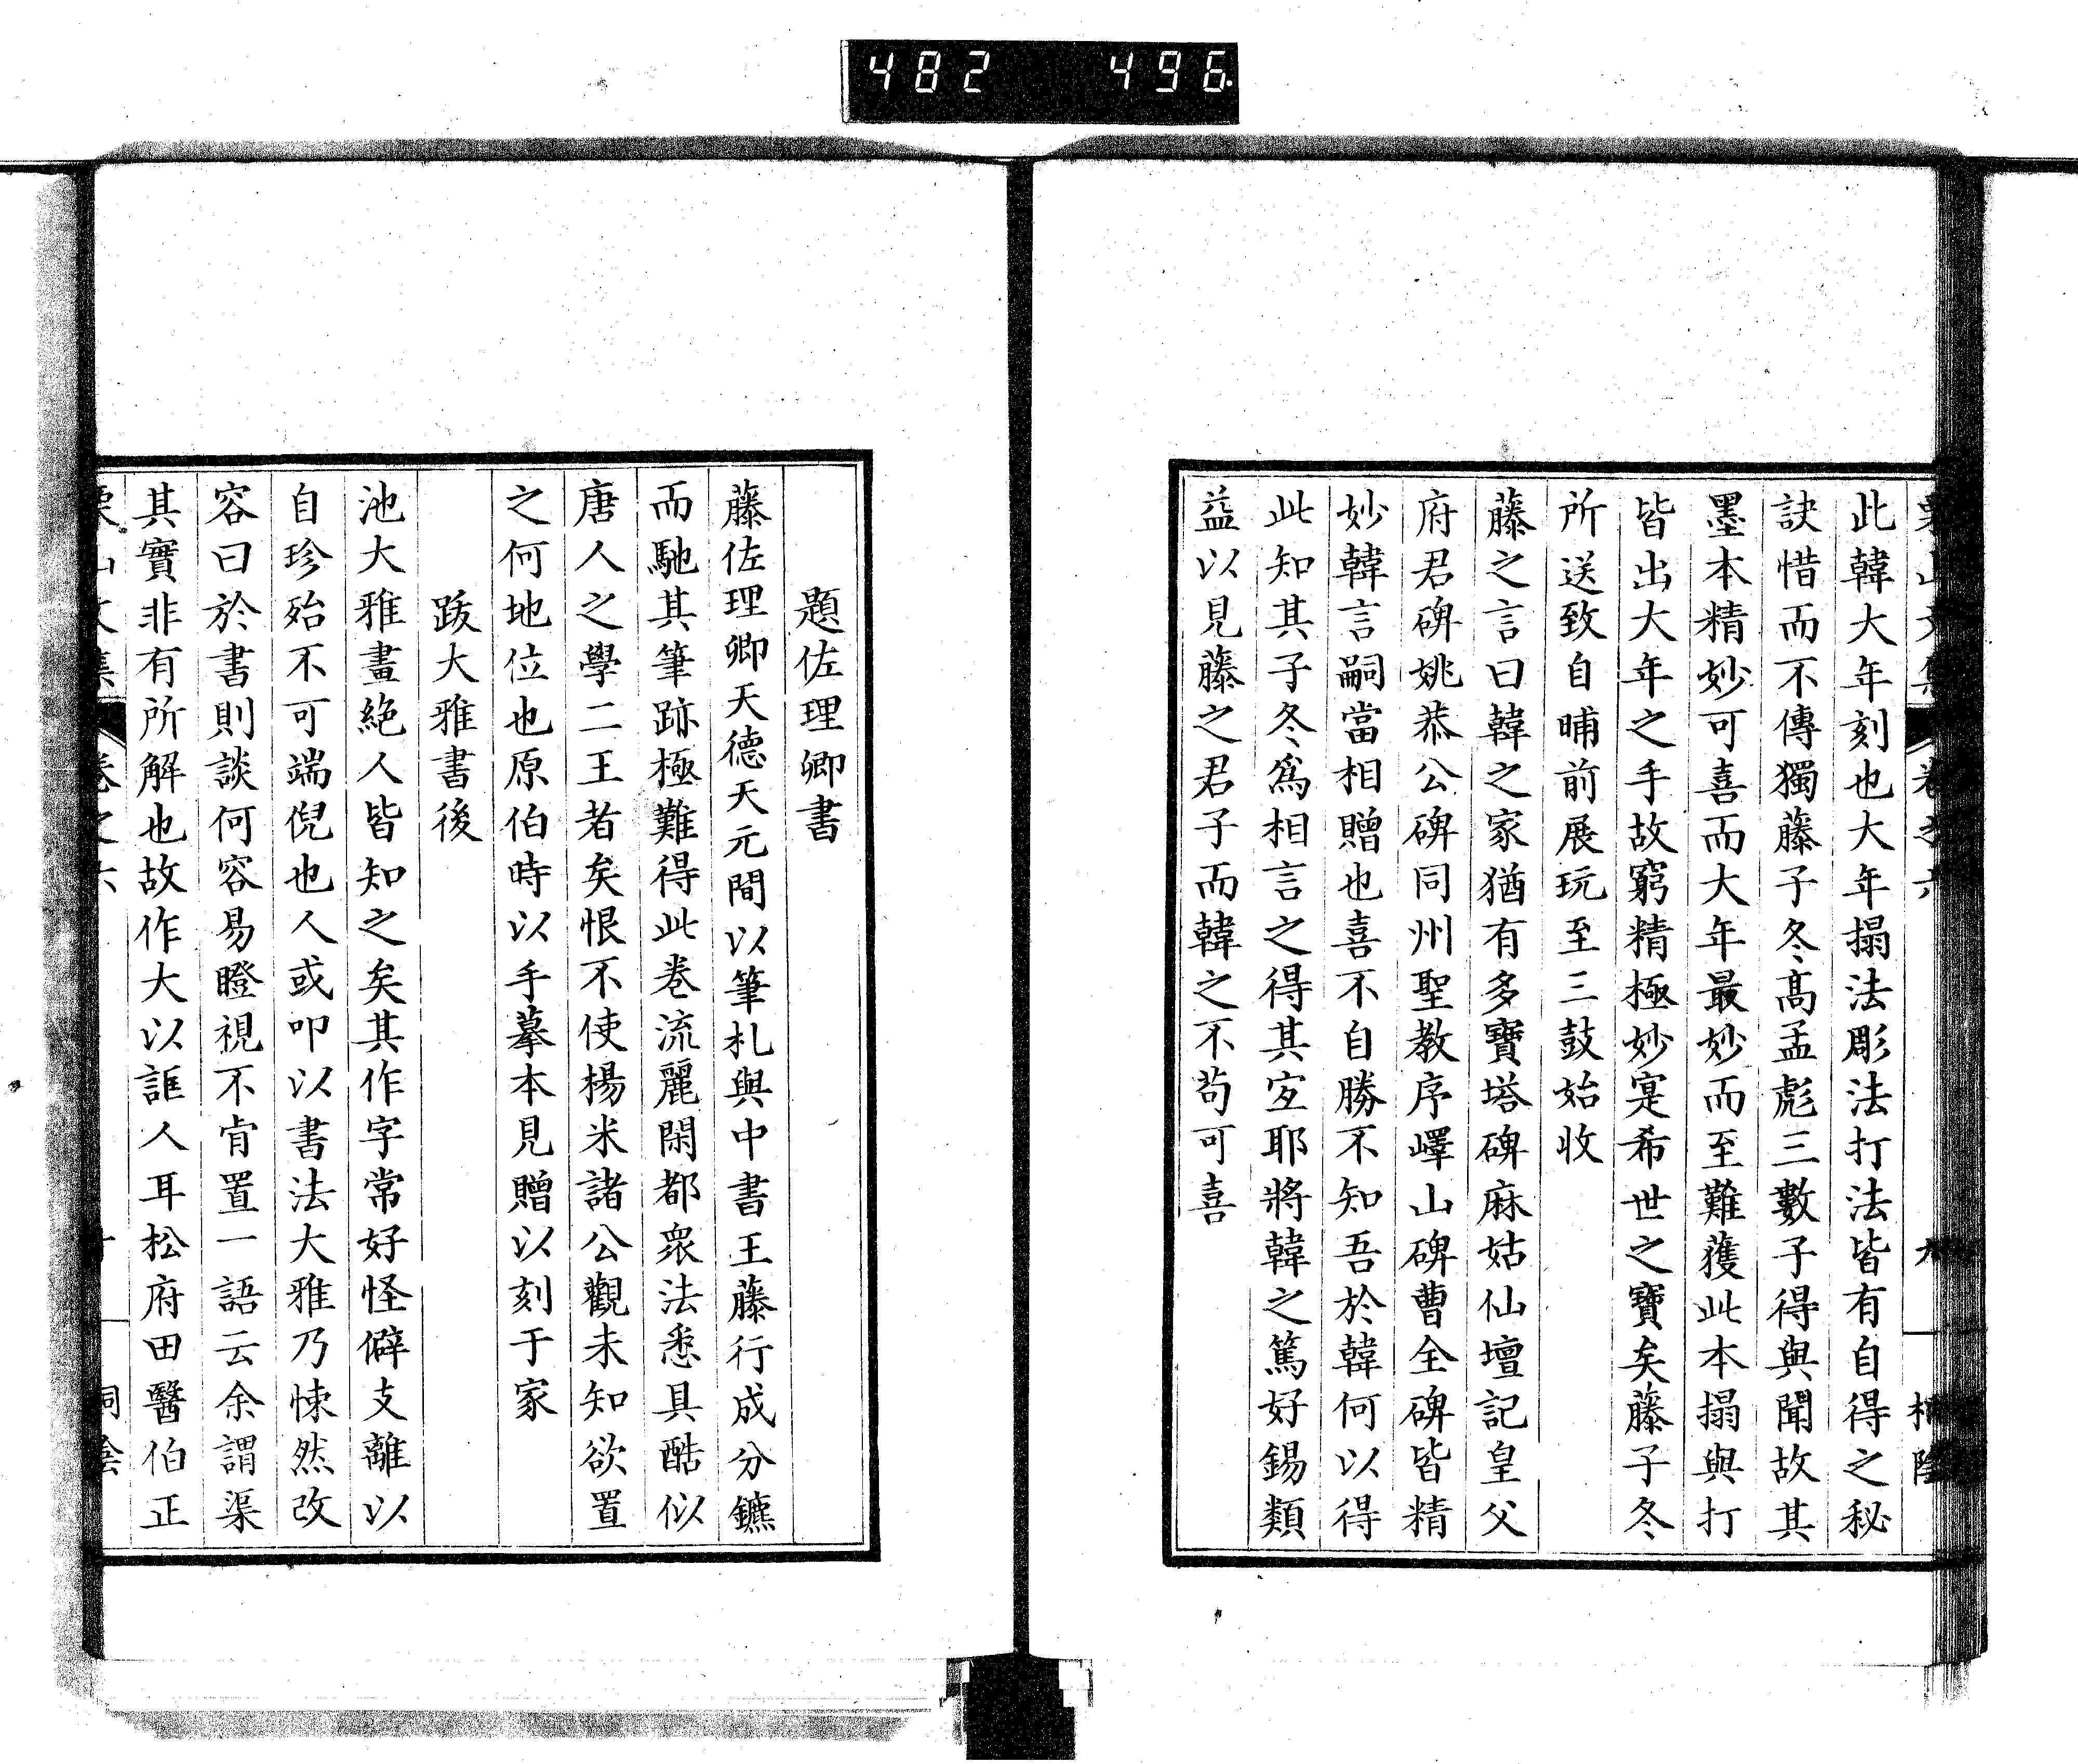 482 496
此韓大年刻也大年搨法彫法打法皆有自得之秘
訣惜而不傳獨藤子冬髙孟彪三數子得與聞故其
墨本精妙可喜而大年最妙而至難獲此本搨與打
皆出大年之手故窮精極妙寔希世之寶矣藤子冬
所送致自晡前展玩至三鼓始收
藤之言曰韓之家猶有多寶塔碑麻姑仙壇記皇父
府君碑姚恭公碑同州聖教序嶧山碑曹全碑皆精
妙韓言嗣當相贈也喜不自勝不知吾於韓何以得
此知其子冬爲相言之得其宐耶將韓之篤好錫類
益以見藤之君子而韓之不苟可喜
題佐理卿書
藤佐理卿天德天元間以筆札與中書王藤行成分鑣
而馳其筆跡極難得此卷流麗閑都衆法悉具酷似
唐人之學二王者矣恨不使楊米諸公觀未知欲置
之何地位也原伯時以手摹本見贈以刻于家
跋大雅書後
池大雅畫絕人皆知之矣其作字常好怪僻支離以
自珍殆不可端倪也人或叩以書法大雅乃悚然改
容曰於書則談何容易瞪視不肯置一語云余謂渠
其實非有所解也故作大以誑人耳松府田醫伯正
山文集 卷之六